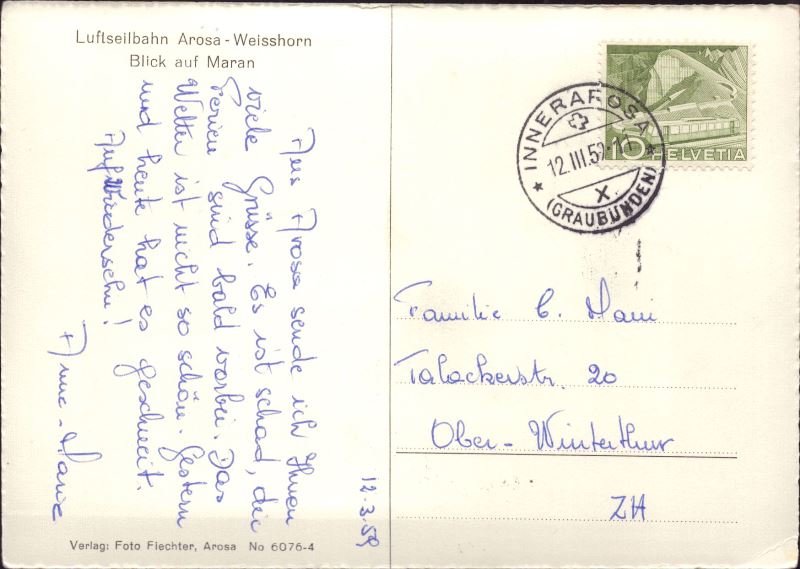 Luftseilbahn Arosa - Weisshorn
Blick auf Maran
Aus Arosa sende ich Ihnen
viele Grüsse. Es ist schad, die
Ferien sind bald vorbei. Das
Wetter ist nicht so schön. Gestern
und heute hat es geschneit.
Auf Wiedersehn!
Anne-Marie
12.3.59
Verlag: Foto Fiechter, Arosa No 6076-4
INNERAROSA
12.III.59-11
X.
(GRAUBÜNDEN)
10 HELVETIA
Familie C.
Talackerstr. 20
Ober-Winterthur
ZH